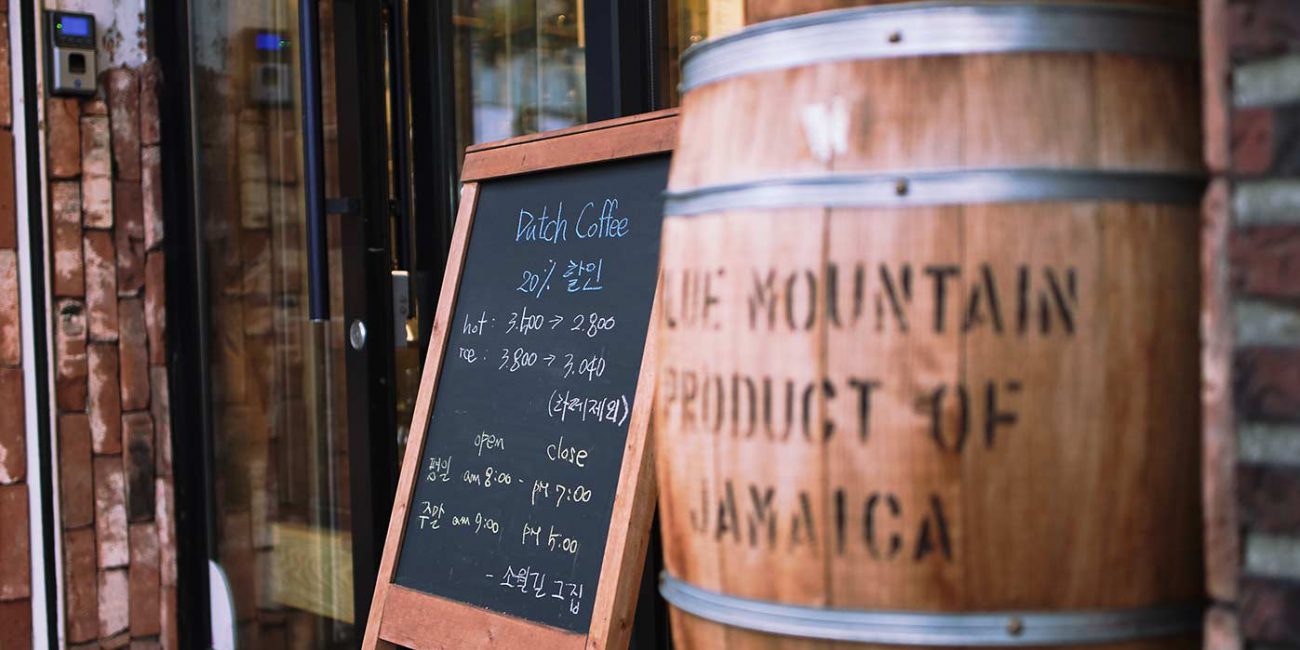 Dutch Coffee
20% 할인
hot : 3.500 → 2.800
ice : 3.800 → 3.040
(라떼제외)
open close
평일 am 8:00 - PM 7:00
주말 am 9:00 PM 5:00
- 소월길 그집
LUE MOUNTAIN
PRODUCT OF
JAMAICA